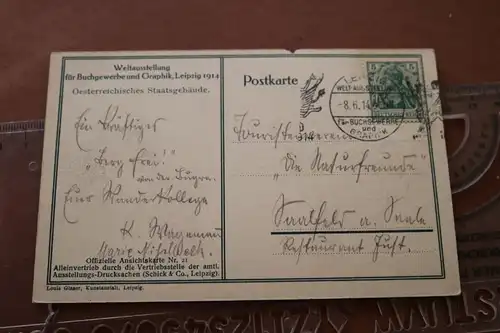 Weltausstellung
für Buchgewerbe und Graphik, Leipzig 1914
Oesterreichisches Staatsgebäude.
Postkarte
5 5
DEUTSCHES REICH
LEIPZIG
WELT-AUSSTELLUNG
-8.6.14
F. BUCHGEWERBE
und
GRAPHIK
Ein kräftiges
"Berg frei!"
von der Bugra.
Eure Wanderkollege
K. Wagenau
Touristenverein
"Die Naturfreunde"
Saalfeld a. Saale
Restaurant
Offizielle Ansichtskarte Nr. 21
Alleinvertrieb durch die Vertriebsstelle der amtl.
Ausstellungs-Drucksachen (Schick & Co., Leipzig).
Louis Glaser, Kunstanstalt, Leipzig.